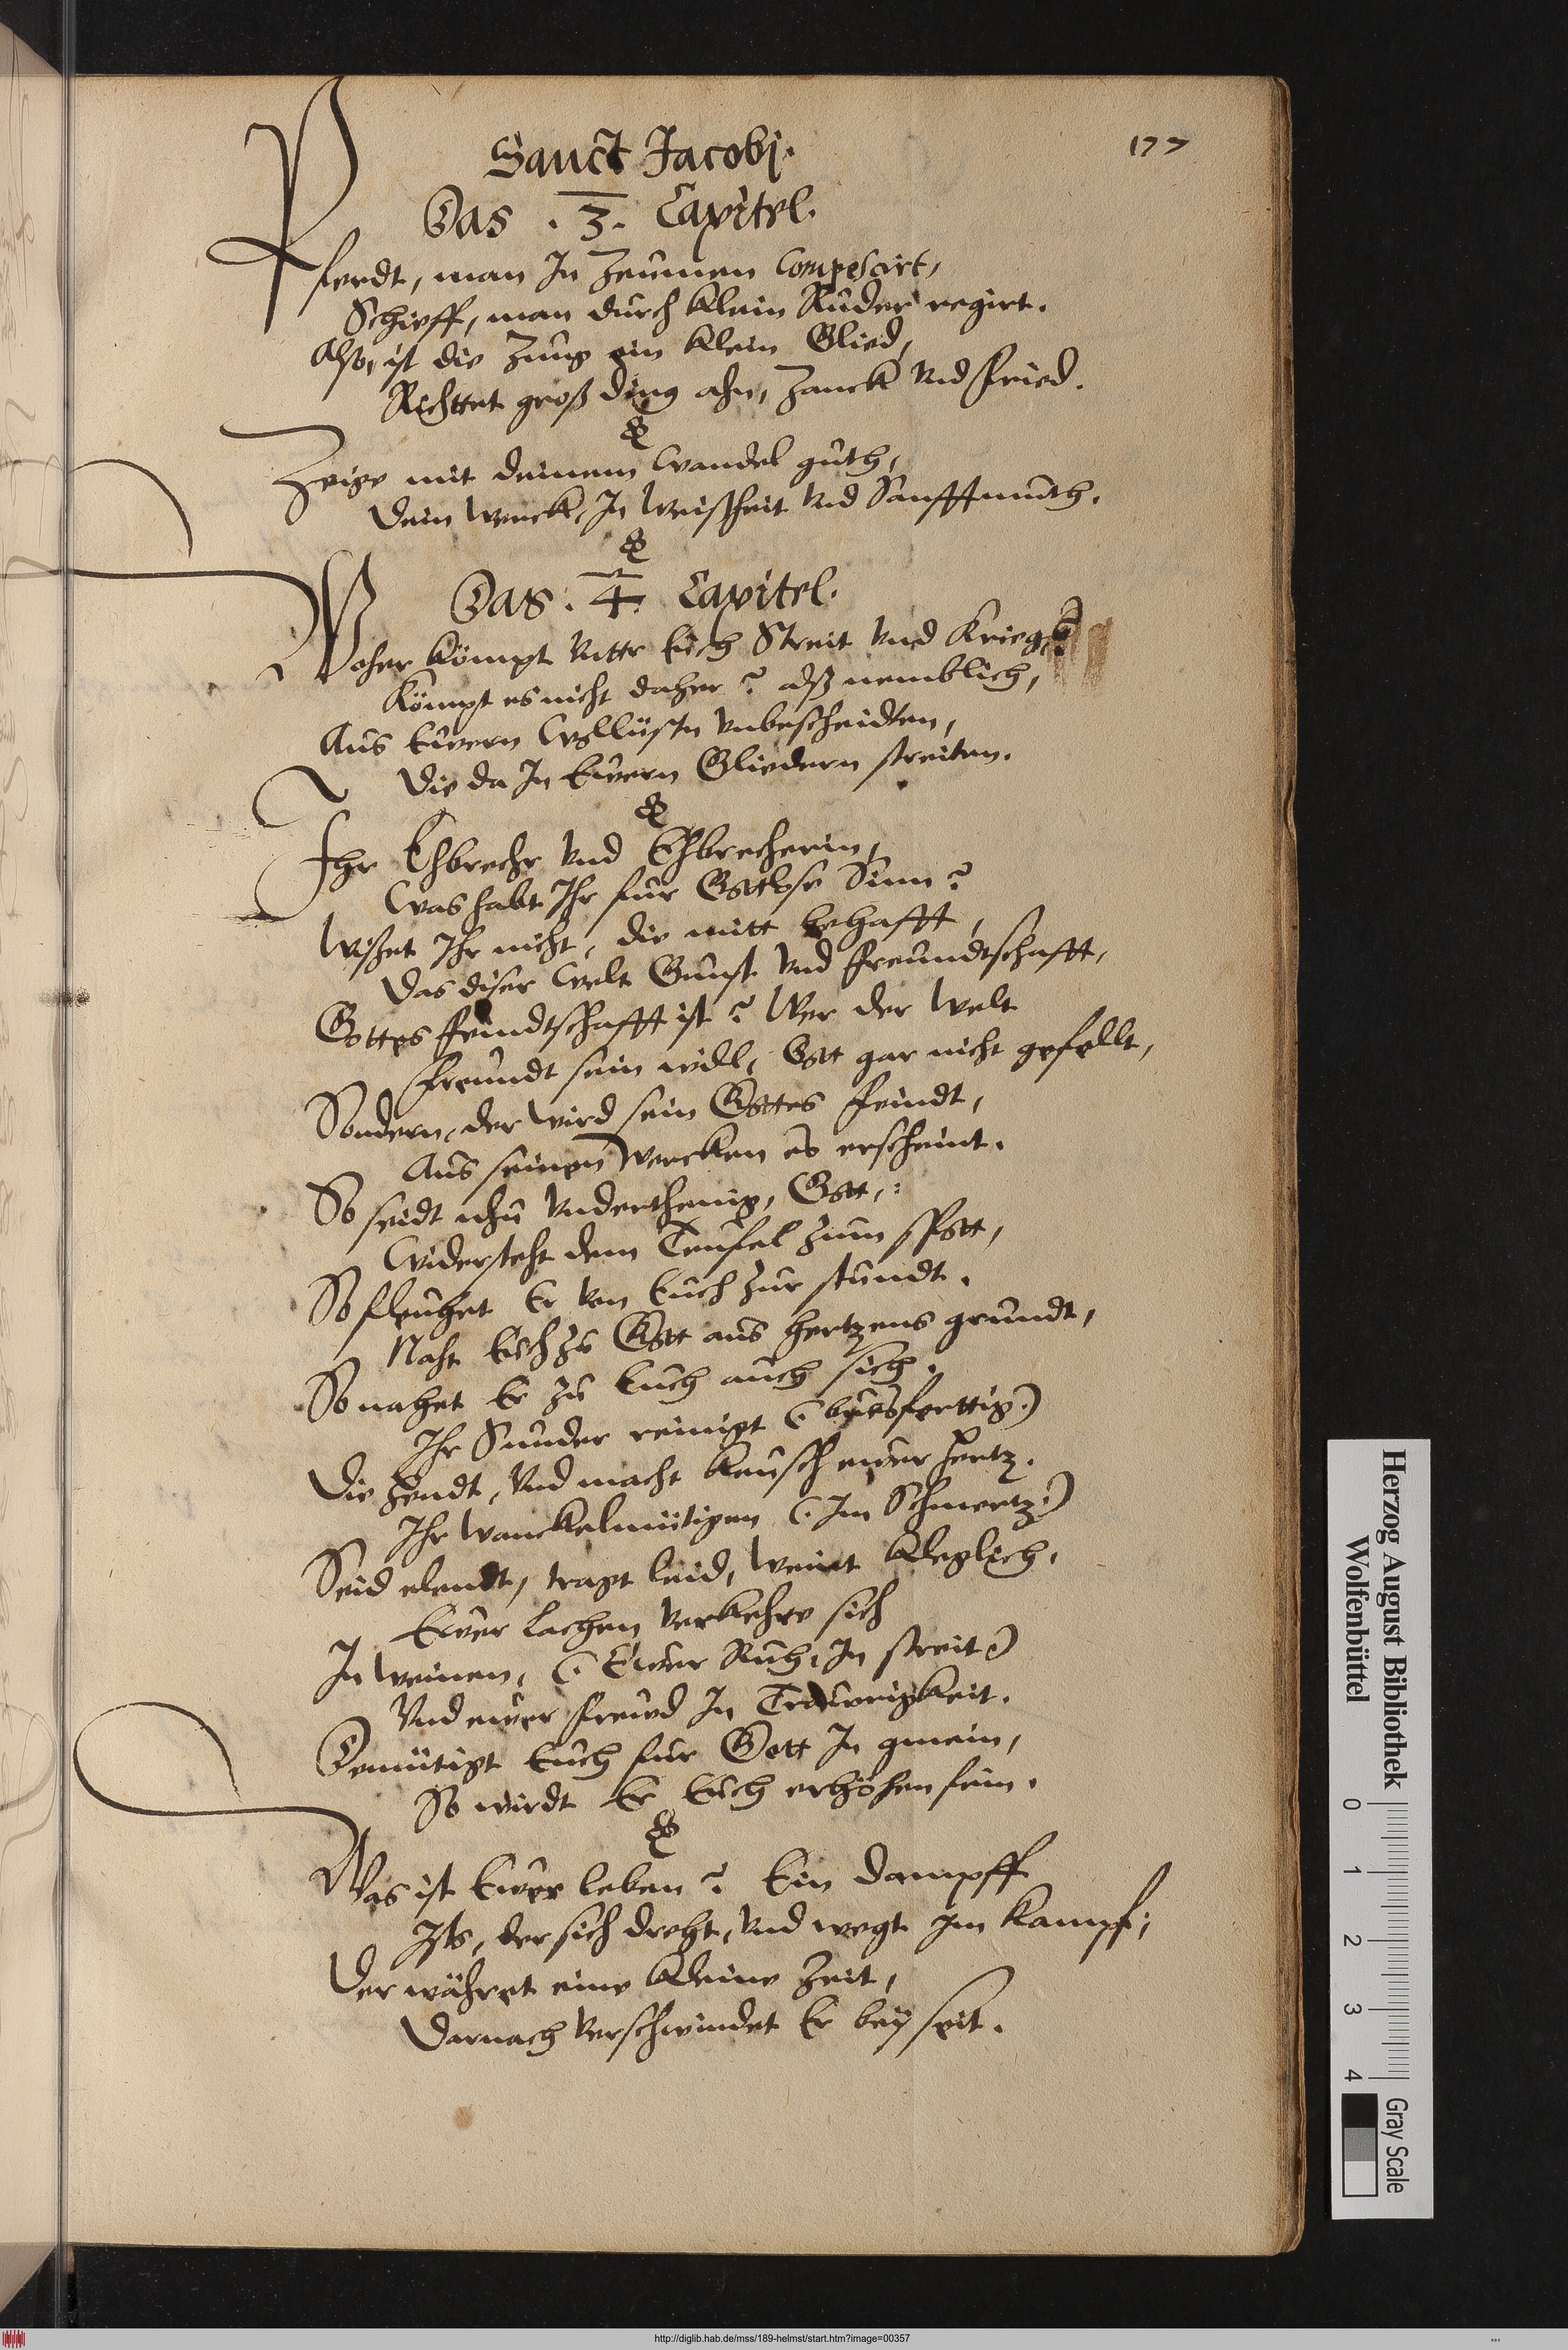 177
Sanct Jacobj.
Das . 3. Capitel.
Pferdt, man In Zeumen Compescirt,
Schieff, man durch klein Ruder regirt.
Also, ist die Zung ein klein Glied,
Richttet groß ding ahn, Zanck vnd fried.
Zeige mit deinem Wandel guth,
Dein Werck, In Weißheit vnd Sanfftmuth.
Das . 4. Capitel.
Woher kömpt vnttr Euch Streit vnd Krieg?
Kömpt es nicht daher? alß nemblich,
Aus Euern Wollüstn vnbescheidten,
Die da In Euern Gliedern streiten.
Ihr Ehbrechr vnd Ehbrecherin,
Was habt Ihr für Gottlose Sinn?
Wißet Ihr nicht, die mitt behafft,
Das diser Welt Gunst vnd freundtschafft,
Gottes feindtschafft ist? Wer der Welt
freundt sein will, Gott gar nicht gefellt,
Sondern, der wird sein Gottes feindt,
Aus seinen Wercken es erscheint.
So seidt nhu vnderthenig, Gott,:
Widersteht dem Teufel zum spott,
So fleuhet Er von Euch zur stundt.
Naht Euch zu Gott aus hertzens grundt,
So nahet Er zu Euch auch sich.
Ihr Sunder reinigt (. buesferttig.)
Die hendt, vnd macht keusch ewer hertz.
Ihr Wanckelmütigen (. Im Schmertz.)
Seid elendt, tragt leid, Weinet kleglich.
Ewer lachen verkehre sich
In Weinen, (. Ewer Ruh, In streit.)
Vnd ewer freud In Traurigkeit.
Demütigt Euch fur Gott In gmein,
So wirdt Er Euch erhöhen fein.
Was ist Ewer leben? Ein dampff
Ists, der sich dreht, vnd wegt im kampf;
Der währet eine kleine Zeit,
Darnach verschwindet Er bey seit.
Herzog August Bibliothek
Wolfenbüttel
0 1 2 3 4
Gray Scale
http://diglib.hab.de/mss/189-helmst/start.htm?image=00357